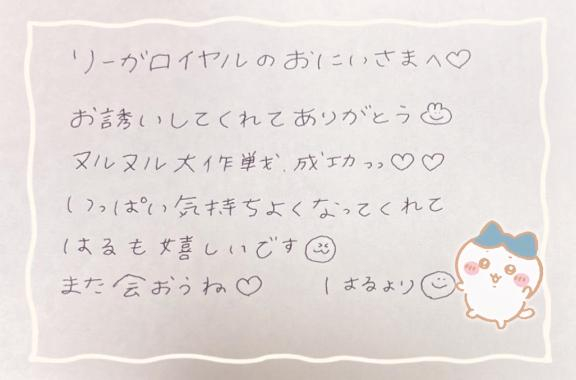 リーガロイヤルのおにいさまへ♡
お誘いしてくれてありがとう
ヌルヌル大作戦、成功っっ♡♡
いっぱい気持ちよくなってくれて
はるも嬉しいです
また会おうね♡ はるより